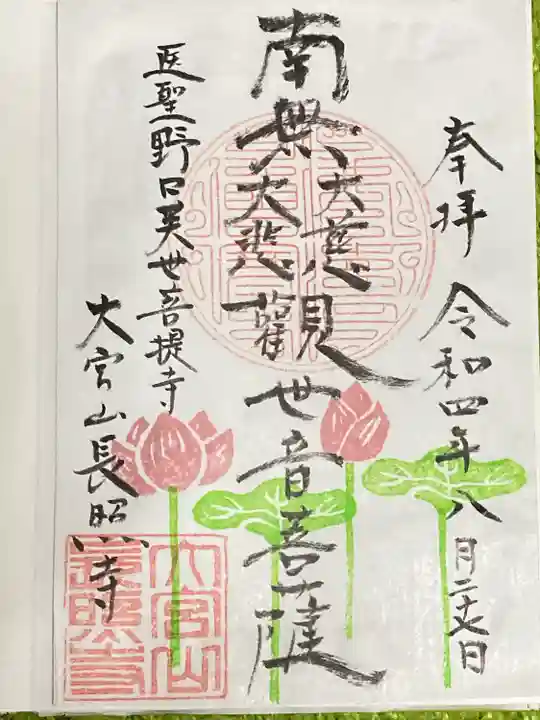 奉拝 令和四年八月二十七日
南無大慈大悲觀世音菩薩
医聖野口英世菩提寺
大宮山長照寺
大宮山
長照寺